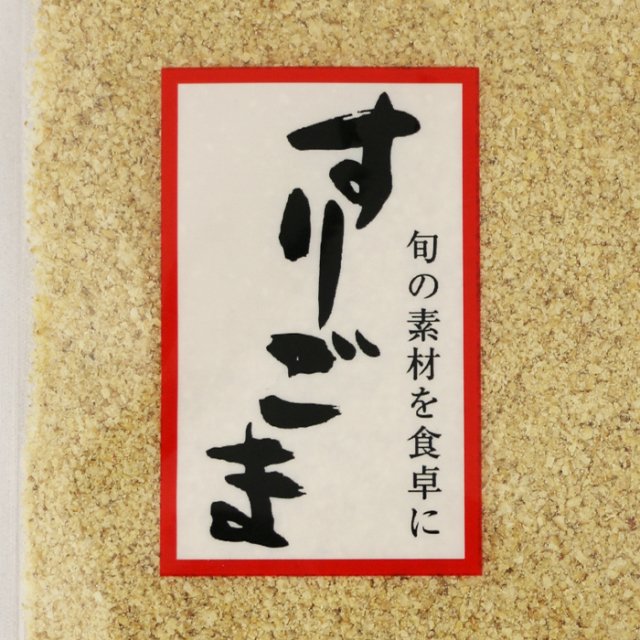 旬の素材を食卓に
すりごま